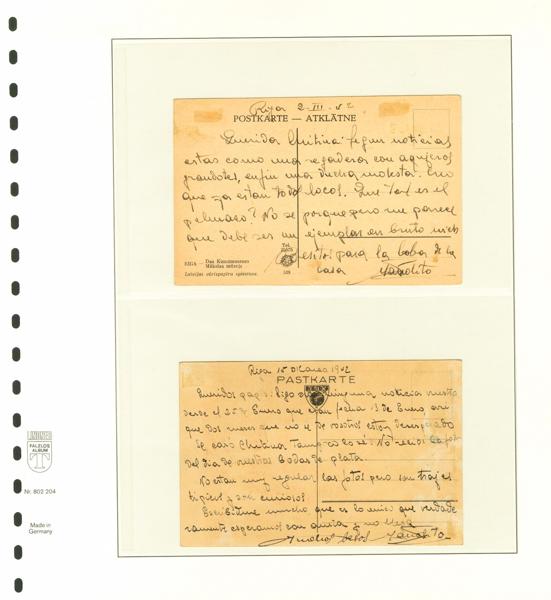 Riga 2-III-42
POSTKARTE — ATKLĀTNE
Querida Chitina: segun noticias
estas como una regadera con agujeros
grandotes, en fin una ducha molesta. Creo
que ya estan todos locos. Que tal es el
pelmazo? No se porque pero me parece
que debe ser un ejemplar en bruto
para la boba de la
casa
RIGA Das Kunstmuseum
Mākslas mūzejs
Latvijas vārispapīra spiestuve.
Tel.
Riga 15 Marzo 1942
PASTKARTE
Queridos papás: Sigo sin ninguna noticia
desde el 25 Enero que eran fecha 13 de Enero asi
que dos meses que no se de vosotros estoy
El caso Chitina tampoco se. No recibi
del dia de vuestras Bodas de plata.
No estan muy regular las fotos pero son trajes
tipicos y son curiosos
Escribirme mucho que es lo unico que verdade
ramente esperamos con ansia y no llega
Muchos besos
LINDNER
FALZLOS
ALBUM
T
Nr. 802 204
Made in
Germany